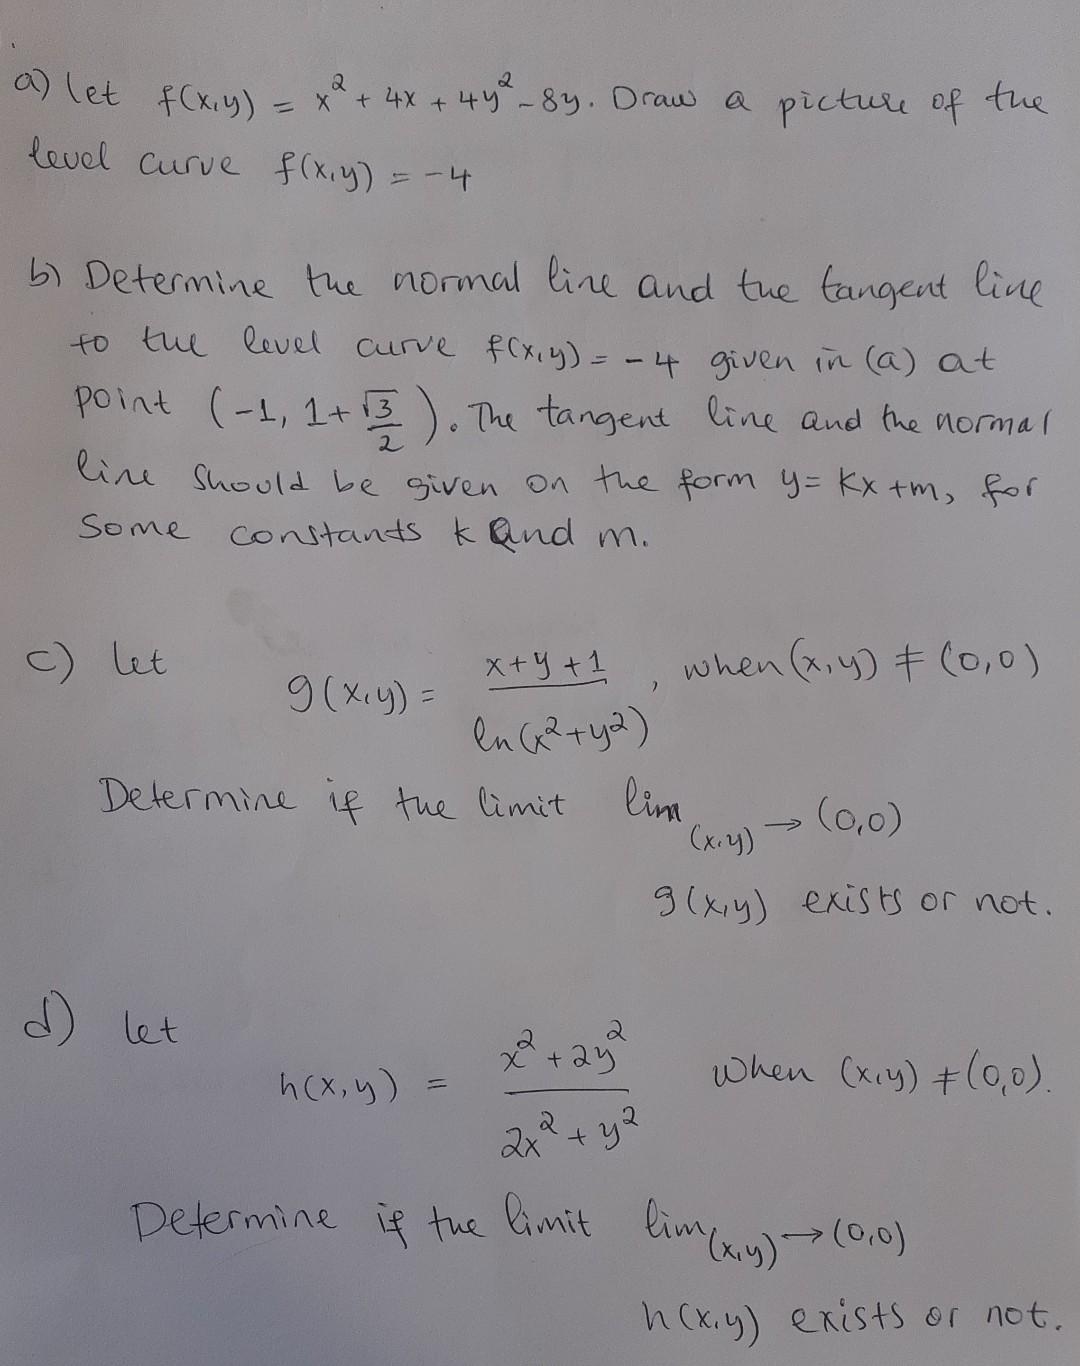 a) let f(x,y) = x² + 4x + 4y² - 8y. Draw a picture of the
level curve f(x,y) = -4
b) Determine the normal line and the tangent line
to the level curve f(x,y) = -4 given in (a) at
point (-1, 1+ √3/2). The tangent line and the normal
line should be given on the form y = kx + m, for
some constants k and m.
c) let g(x,y) = (x+y+1)/(ln(x²+y²)), when (x,y) ≠ (0,0)
Determine if the limit lim (x,y) → (0,0)
g(x,y) exists or not.
d) let h(x,y) = (x² + 2y²)/(2x² + y²) when (x,y) ≠ (0,0).
Determine if the limit lim (x,y) → (0,0)
h(x,y) exists or not.